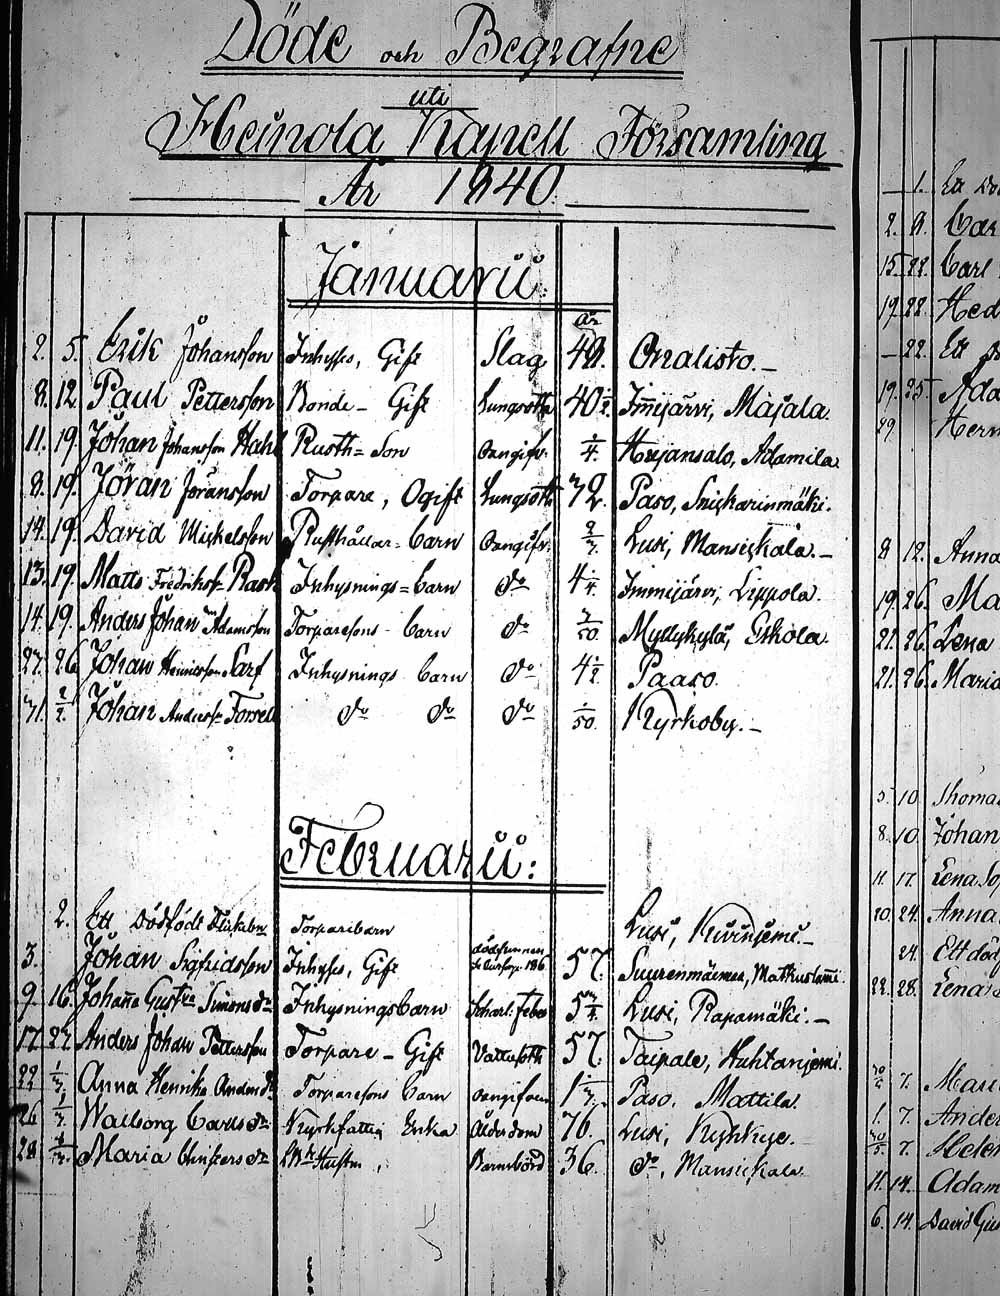 Döde och Begrafne
uti
Heinola Kapell Församling
År 1840.
Januarii:
år
2. 5. Erik Johansson Inhyses, Gift Slag 49. Onalisto.-
8. 12. Paul Pettersson Bonde- Gift Lungsot 40 1/2 Imijärvi, Majala.
11. 19. Johan Johansson Hahl Rusth= Son oangifv. 1/4. Heijansalo, Adamila
8. 19. Jöran Jöransson Torpare, Ogift Lungsot 72. Paso, Snickarinmäki.
14. 19. David Mickelsson Rusthållar= barn oangifv. Lusi, Mansickala.-
13. 19. Matts Fredrikss. Rask Inhysnings=barn do 4 Immijärvi, Lippola.
14. 19. Anders Johan Adamsson Torparesons- barn do Myllykylä, Eskola
27. 26. Johan Henricsson Sarf Inhysnings barn do 4 1/2 Paaso.
31. 2/2. Johan Anderss. Forsell do do do 1/50. Kyrkoby.-
Februarii:
2. Ett dödfödt Flickebn Torparebarn Lusi,
3. Johan Sigfridsson Inhyses, Gift 57.
9. 16. Johanna Gust:va Simons dr Inhysningsbarn Scharl: feber 5 Lusi, Rapamäki.-
17. 22. Anders Johan Pettersson Torpare- Gift Vattusot 57. Taipale, Huhtaniemi.
22 1/3. Anna Henrika Anders dr Torparesons barn oangifven 1 Paso, Mattila.
26 1/3. Walborg Carls dr Kyrkfattig Enka Ålderdom 76. Lusi,
28 Maria dr Hustru Barnsbörd 36. do, Mansickala
1. Ett
2. 9.
15. 22. Carl
19. 22. Hed
22. Ett
19. 25. Ada
29 Herm
8 12. Anna
19. 26. Ma
21. 26. Lena
21. 26. Maria
5. 10. Thomas
8. 10. Johan
11. 17. Lena So
20. 24. Anna
24. Ett död
22. 28. Lena
7. Mari
1. 7. Ander
7. Helen
11. 14. Adam
6. 14. David Gus